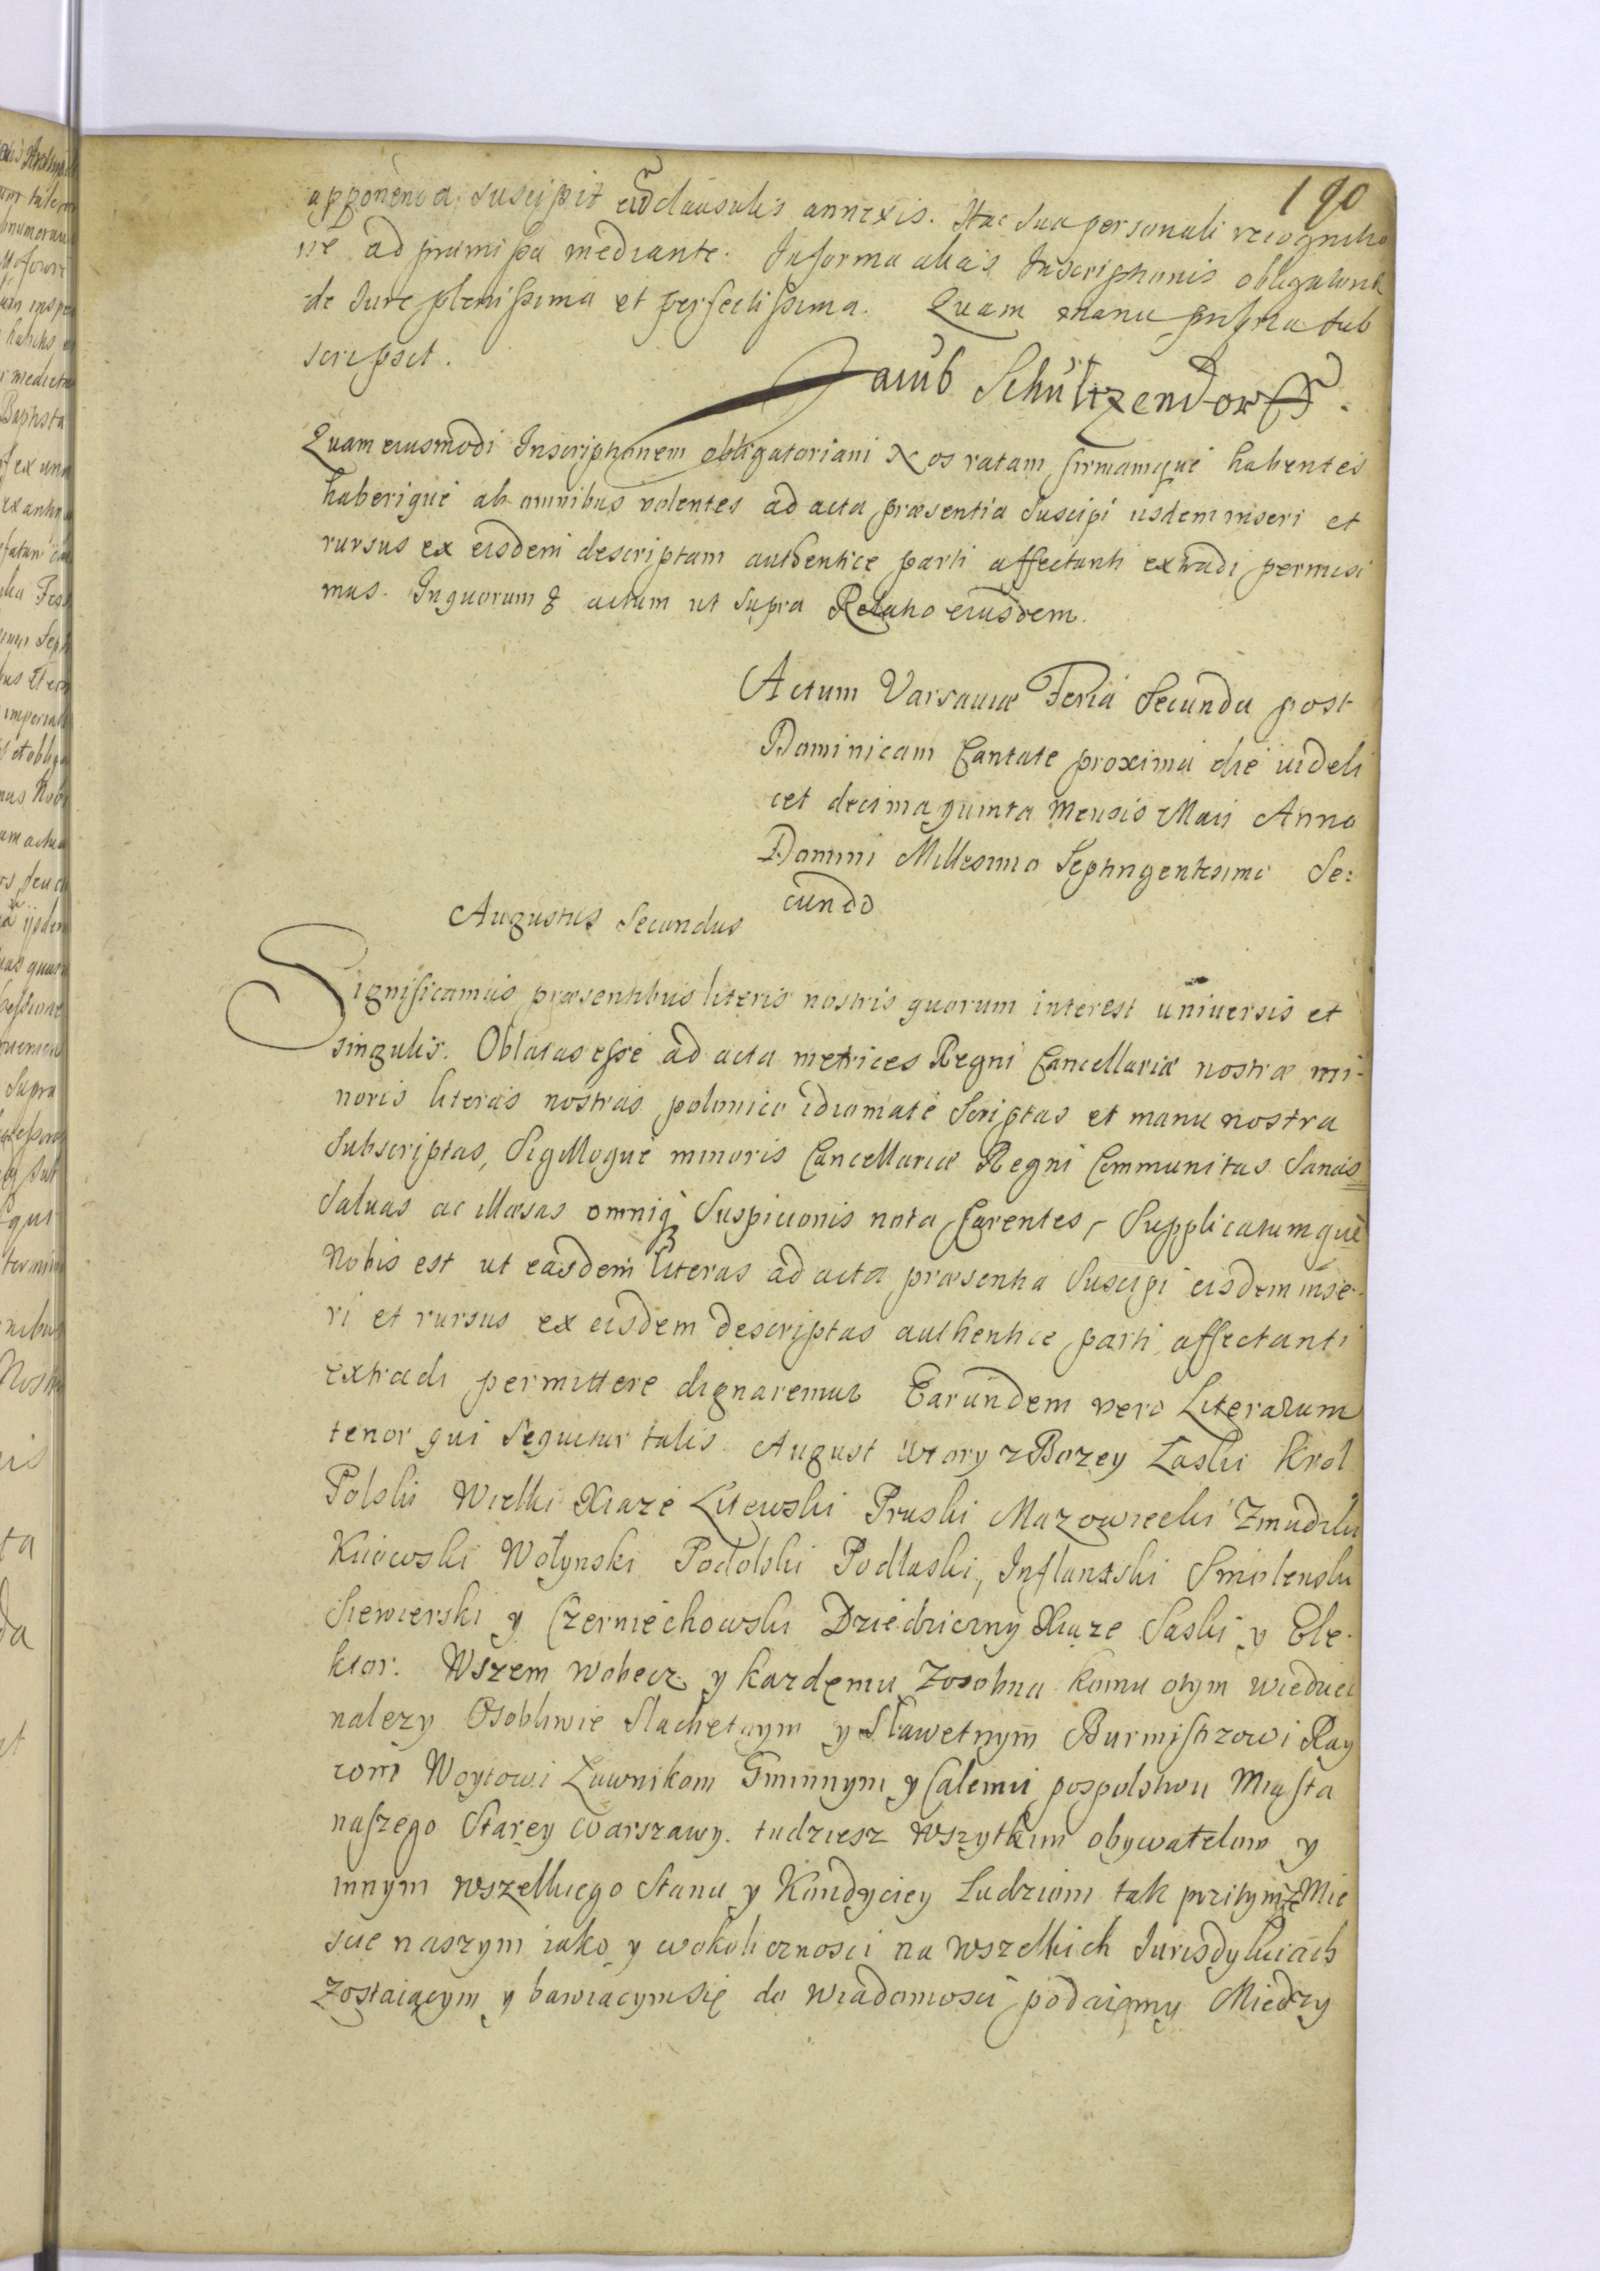 190
apponenda suscipit cum clausulis annexis. Hac sua personali recognitio
ne ad præmissa mediante. In forma alias Inscriptionis obligatoriæ
de Jure plenissima et perfectissima. Quam manu propria sub
scripsit.
Jacub Schültzendorff.
Quam eiusmodi Inscriptionem obligatoriam Nos ratam, firmamque habentes
haberique ab omnibus volentes ad acta præsentia Suscipi iisdem inseri et
rursus ex eisdem descriptam authentice parti affectanti extradi permisi
mus. In quorum & actum ut supra Relatio eiusdem.
Actum Varsaviæ Feria Secunda post
Dominicam Cantate proxima die videli
cet decima quinta Mensis Maii Anno
Domini Millesimo Septingentesimo Se:
cundo
Augustus Secundus
Significamus præsentibus literis nostris quorum interest universis et
singulis. Oblatas esse ad acta metrices Regni Cancellariæ nostræ mi-
noris literas nostras polonico idiomate Scriptas et manu nostra
Subscriptas, Sigilloque minoris Cancellariæ Regni Communitas Sanas
Salvas ac illæsas omniq3 Suspicionis nota Carentes, Supplicatumque
Nobis est ut easdem literas ad acta præsentia Suscipi eisdem inse-
ri et rursus ex eisdem descriptas authentice parti affectanti
extradi permittere dignaremur Earundem vero Literarum
tenor qui Sequitur talis. August wtory z Bozey Laski Krol
Polski Wielki Xiaze Litewski Pruski Mazowiecki Zmudzki
Kiiowski Wołynski Podolski Podlaski, Inflantski Smolenski
Siewierski y Czerniechowski Dziedziczny Xiąze Saski y Ele-
ktor. Wszem wobecz y kazdemu Zosobna komu otym wiedziec
nalezy Osobliwie Slachetnym y Sławetnym Burmistrzowi Ray
com Woytowi Ławnikom Gminnym y Całemu pospolstwu Miasta
naszego Starey Warszawy. tudziesz wszytkim obywatelom y
innym wszelkiego Stanu y Kondyciey Ludziom tak przytymze Mie
scie naszym iako y wokolicznosci na wszelkich Iurisdykciach
Zostaiącym y bawiacym się do wiadomosci podaiemy Miedzy